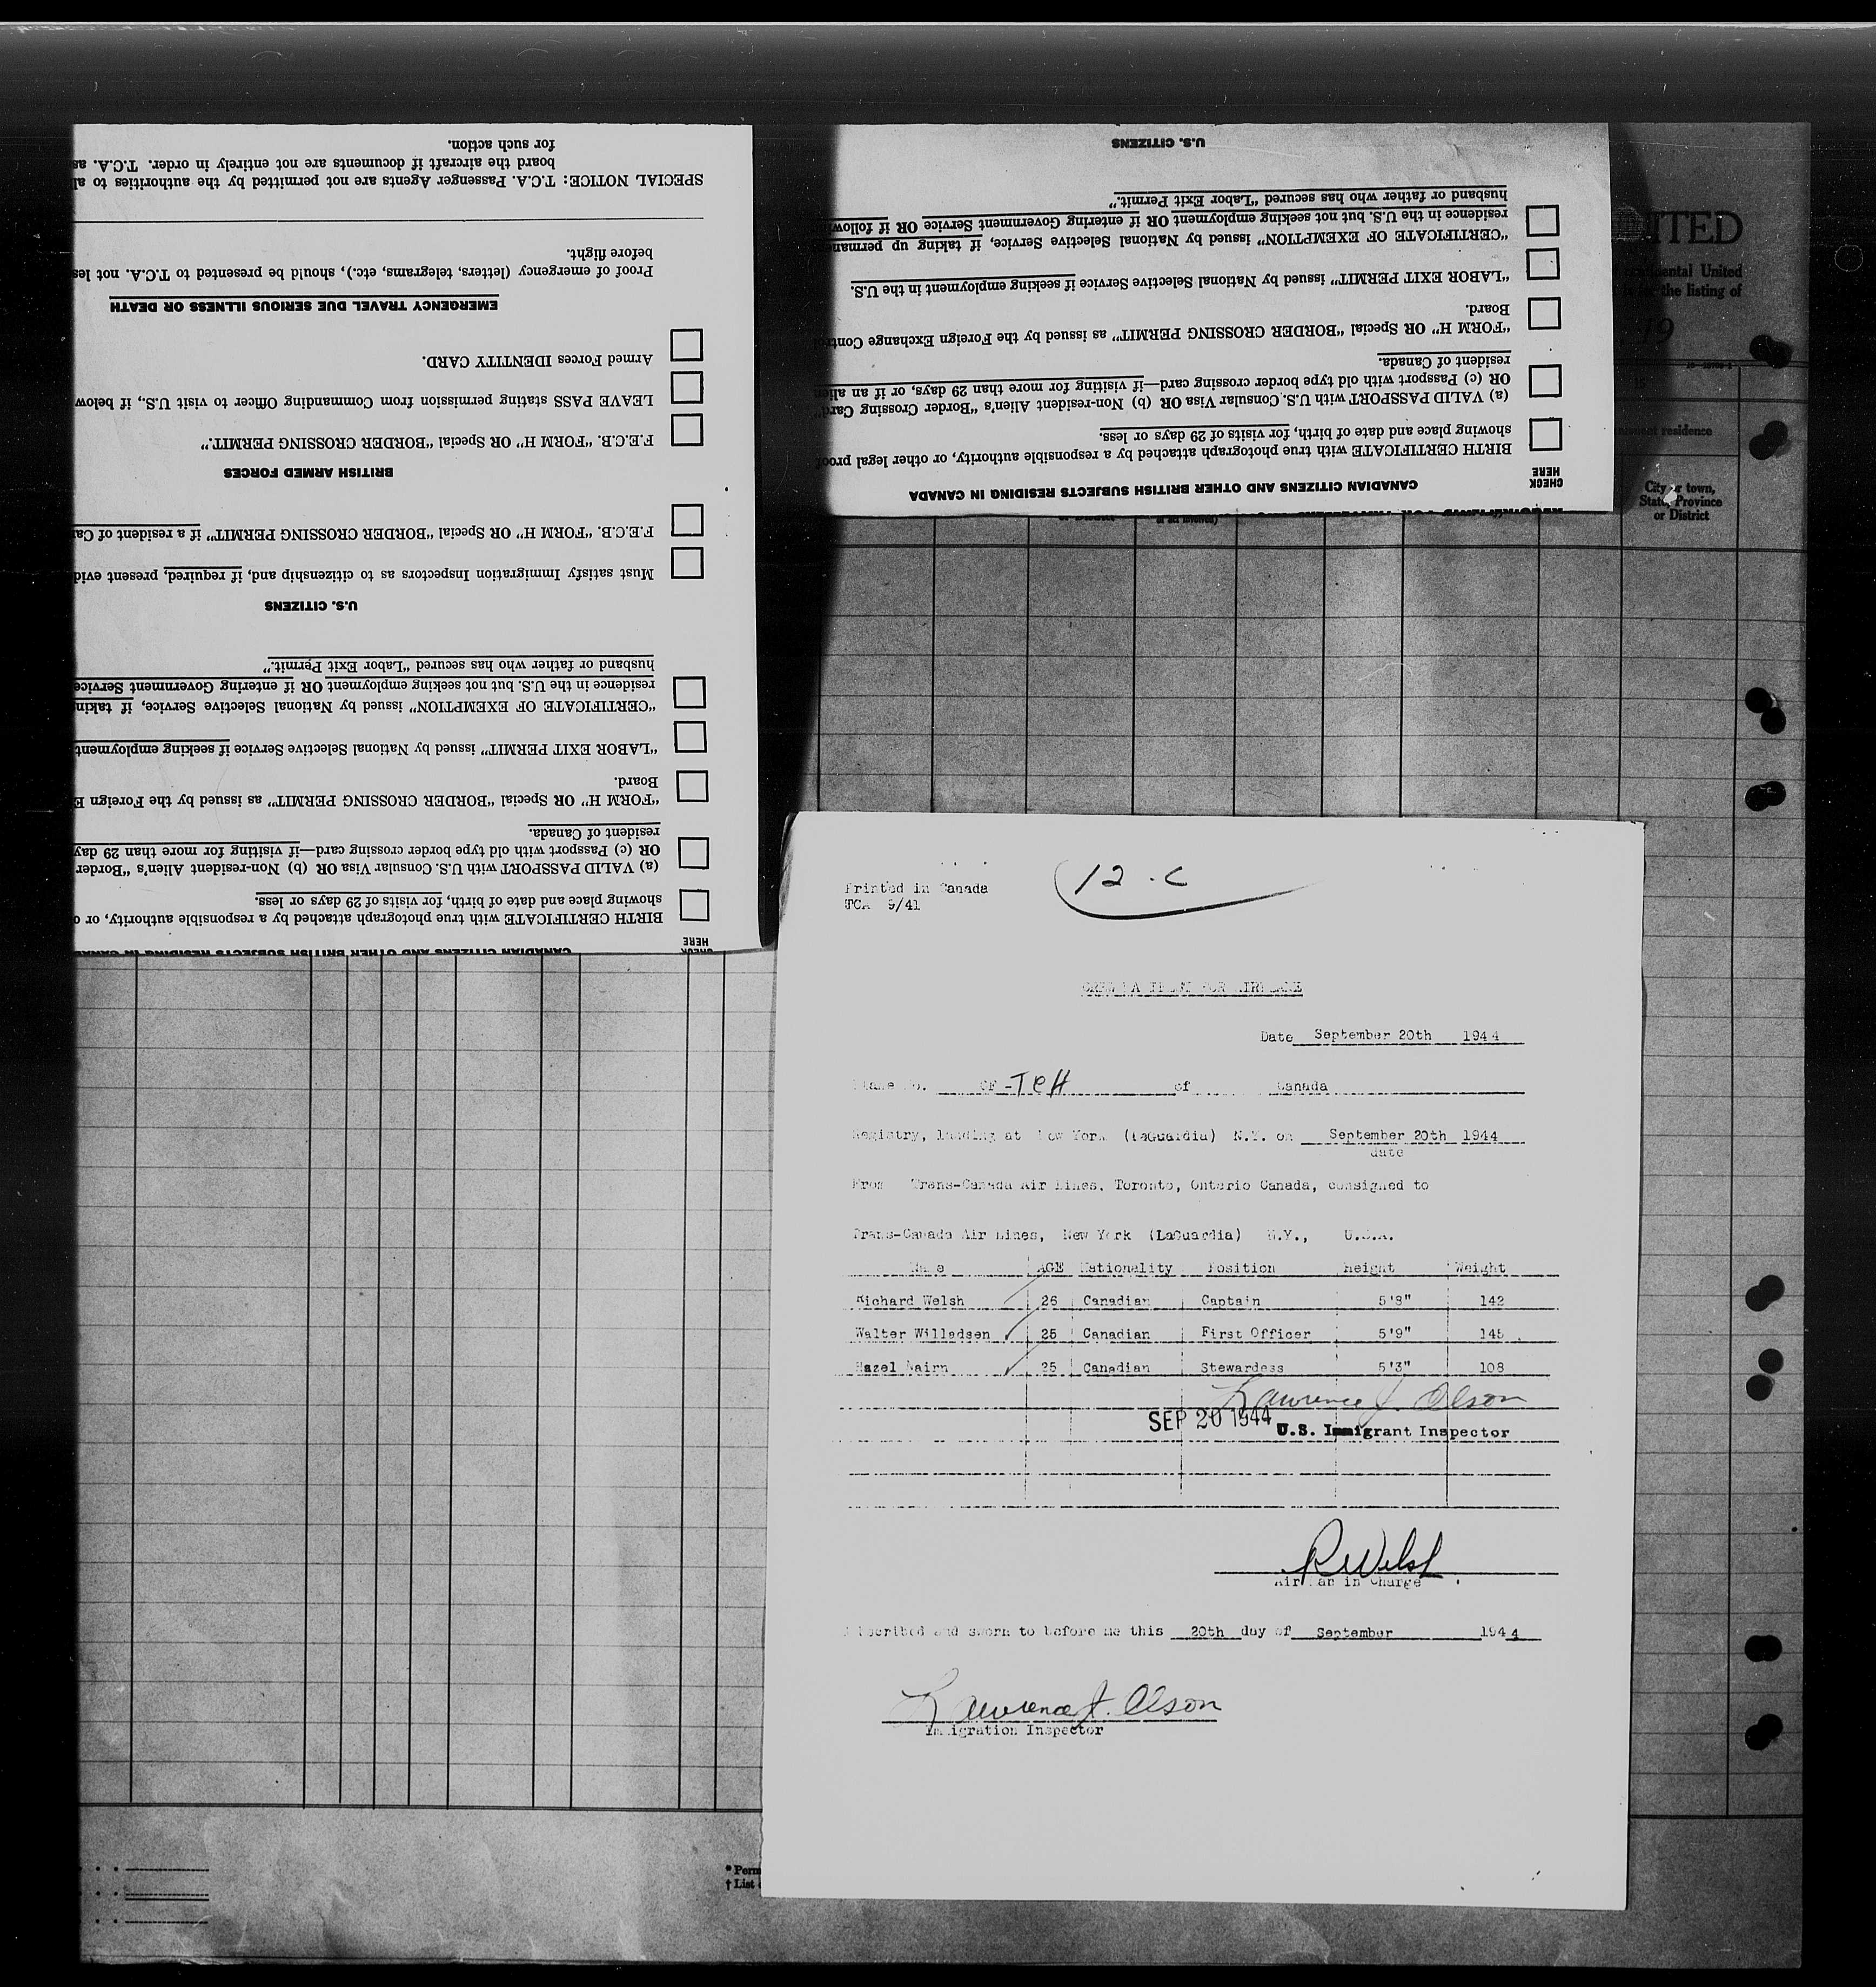 SPECIAL NOTICE: T.C.A. Passenger Agents are not permitted by the authorities to
board the aircraft if documents are not entirely in order. T.C.A.
for such action.
BIRTH CERTIFICATE with true photograph attached by a responsible authority, or
showing place and date of birth, for visits of 29 days or less.
(a) VALID PASSPORT with U.S. Consular Visa OR (b) Non-resident Alien's "Border
OR (c) Passport with old type border crossing card—if visiting for more than 29 day
resident of Canada.
"FORM H" OR Special "BORDER CROSSING PERMIT" as issued by the Foreign
Board.
"LABOR EXIT PERMIT" issued by National Selective Service if seeking employment
"CERTIFICATE OF EXEMPTION" issued by National Selective Service, if
residence in the U.S. but not seeking employment OR if entering Government Service
husband or father who has secured "Labor Exit Permit."
U.S. CITIZENS
Must satisfy Immigration Inspectors as to citizenship and, if required, present
F.E.C.B. "FORM H" OR Special "BORDER CROSSING PERMIT" if a resident of
BRITISH ARMED FORCES
F.E.C.B. "FORM H" OR Special "BORDER CROSSING PERMIT."
LEAVE PASS stating permission from Commanding Officer to visit U.S., if below
Armed Forces IDENTITY CARD.
EMERGENCY TRAVEL DUE SERIOUS ILLNESS OR DEATH
Proof of emergency (letters, telegrams, etc.), should be presented to T.C.A. not
before flight.
CANADIAN CITIZENS AND OTHER BRITISH SUBJECTS RESIDING IN CANADA
CHECK
HERE
BIRTH CERTIFICATE with true photograph attached by a responsible authority, or other legal proof
showing place and date of birth, for visits of 29 days or less.
(a) VALID PASSPORT with U.S. Consular Visa OR (b) Non-resident Alien's "Border Crossing Card"
OR (c) Passport with old type border crossing card—if visiting for more than 29 days, or if an alien
resident of Canada.
"FORM H" OR Special "BORDER CROSSING PERMIT" as issued by the Foreign Exchange Control
Board.
"LABOR EXIT PERMIT" issued by National Selective Service if seeking employment in the U.S.
"CERTIFICATE OF EXEMPTION" issued by National Selective Service, if taking up
residence in the U.S. but not seeking employment OR if entering Government Service OR if
husband or father who has secured "Labor Exit Permit."
U.S. CITIZENS
ITED
United
the listing of
19
residence
City or town,
State, Province
or District
Printed in Canada
TCA 9/41
12.C
CREW MANIFEST FOR AIRPLANE
Date September 20th 1944
Plane No. CF-TCH of Canada
Registry, landing at New York (LaGuardia) N.Y. on September 20th 1944
date
From Trans-Canada Air Lines, Toronto, Ontario Canada, consigned to
Trans-Canada Air Lines, New York (LaGuardia) N.Y., U.S.A.
Name AGE Nationality Position Height Weight
Richard Welsh 26 Canadian Captain 5'8" 142
Walter Willedsen 25 Canadian First Officer 5'9" 145
Hazel Nairn 25 Canadian Stewardess 5'3" 108
Lawrence J. Olson
SEP 20 1944 U.S. Immigrant Inspector
R Welsh
Airman in Charge
Subscribed and sworn to before me this 20th day of September 1944
Lawrence J. Olson
Immigration Inspector
* Perm
† List